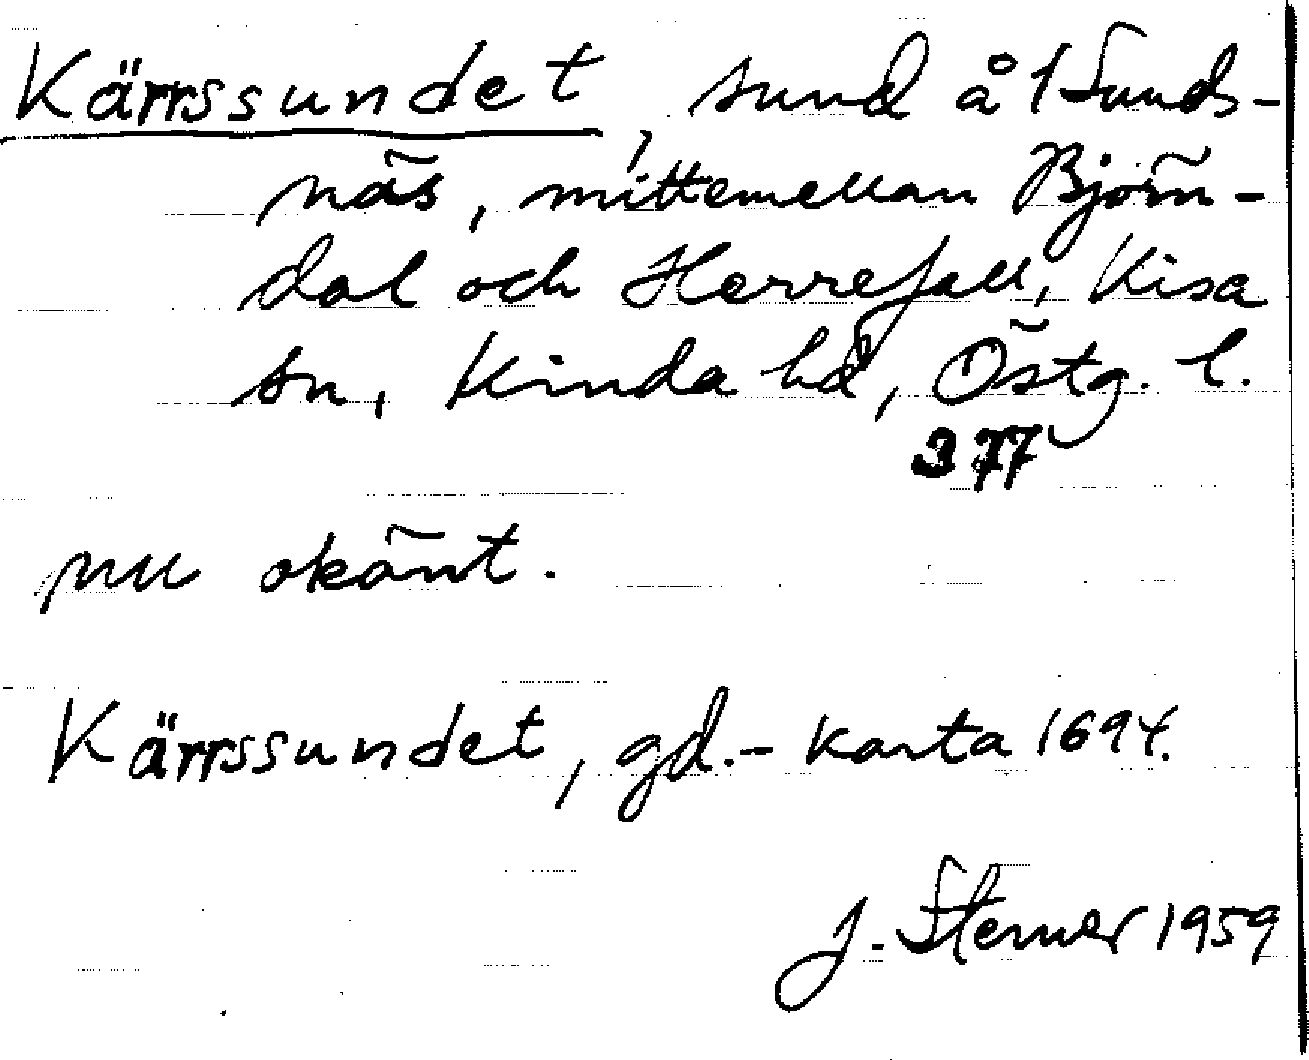 Kärrssundet, sund å 1 Sunds-
näs, mittemellan Björn-
dal och Herrefall, Kisa
sn, Kinda hd, Östg. l.
377
nu okänt.
Kärrssundet, gd.- karta 1694.
J. Sterner 1959